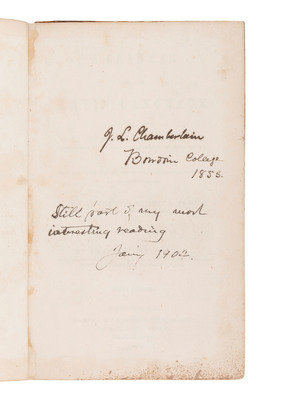 J. L. Chamberlain
Bowdoin College
1855.
Still part of my most
interesting reading
Jan'y 1902.